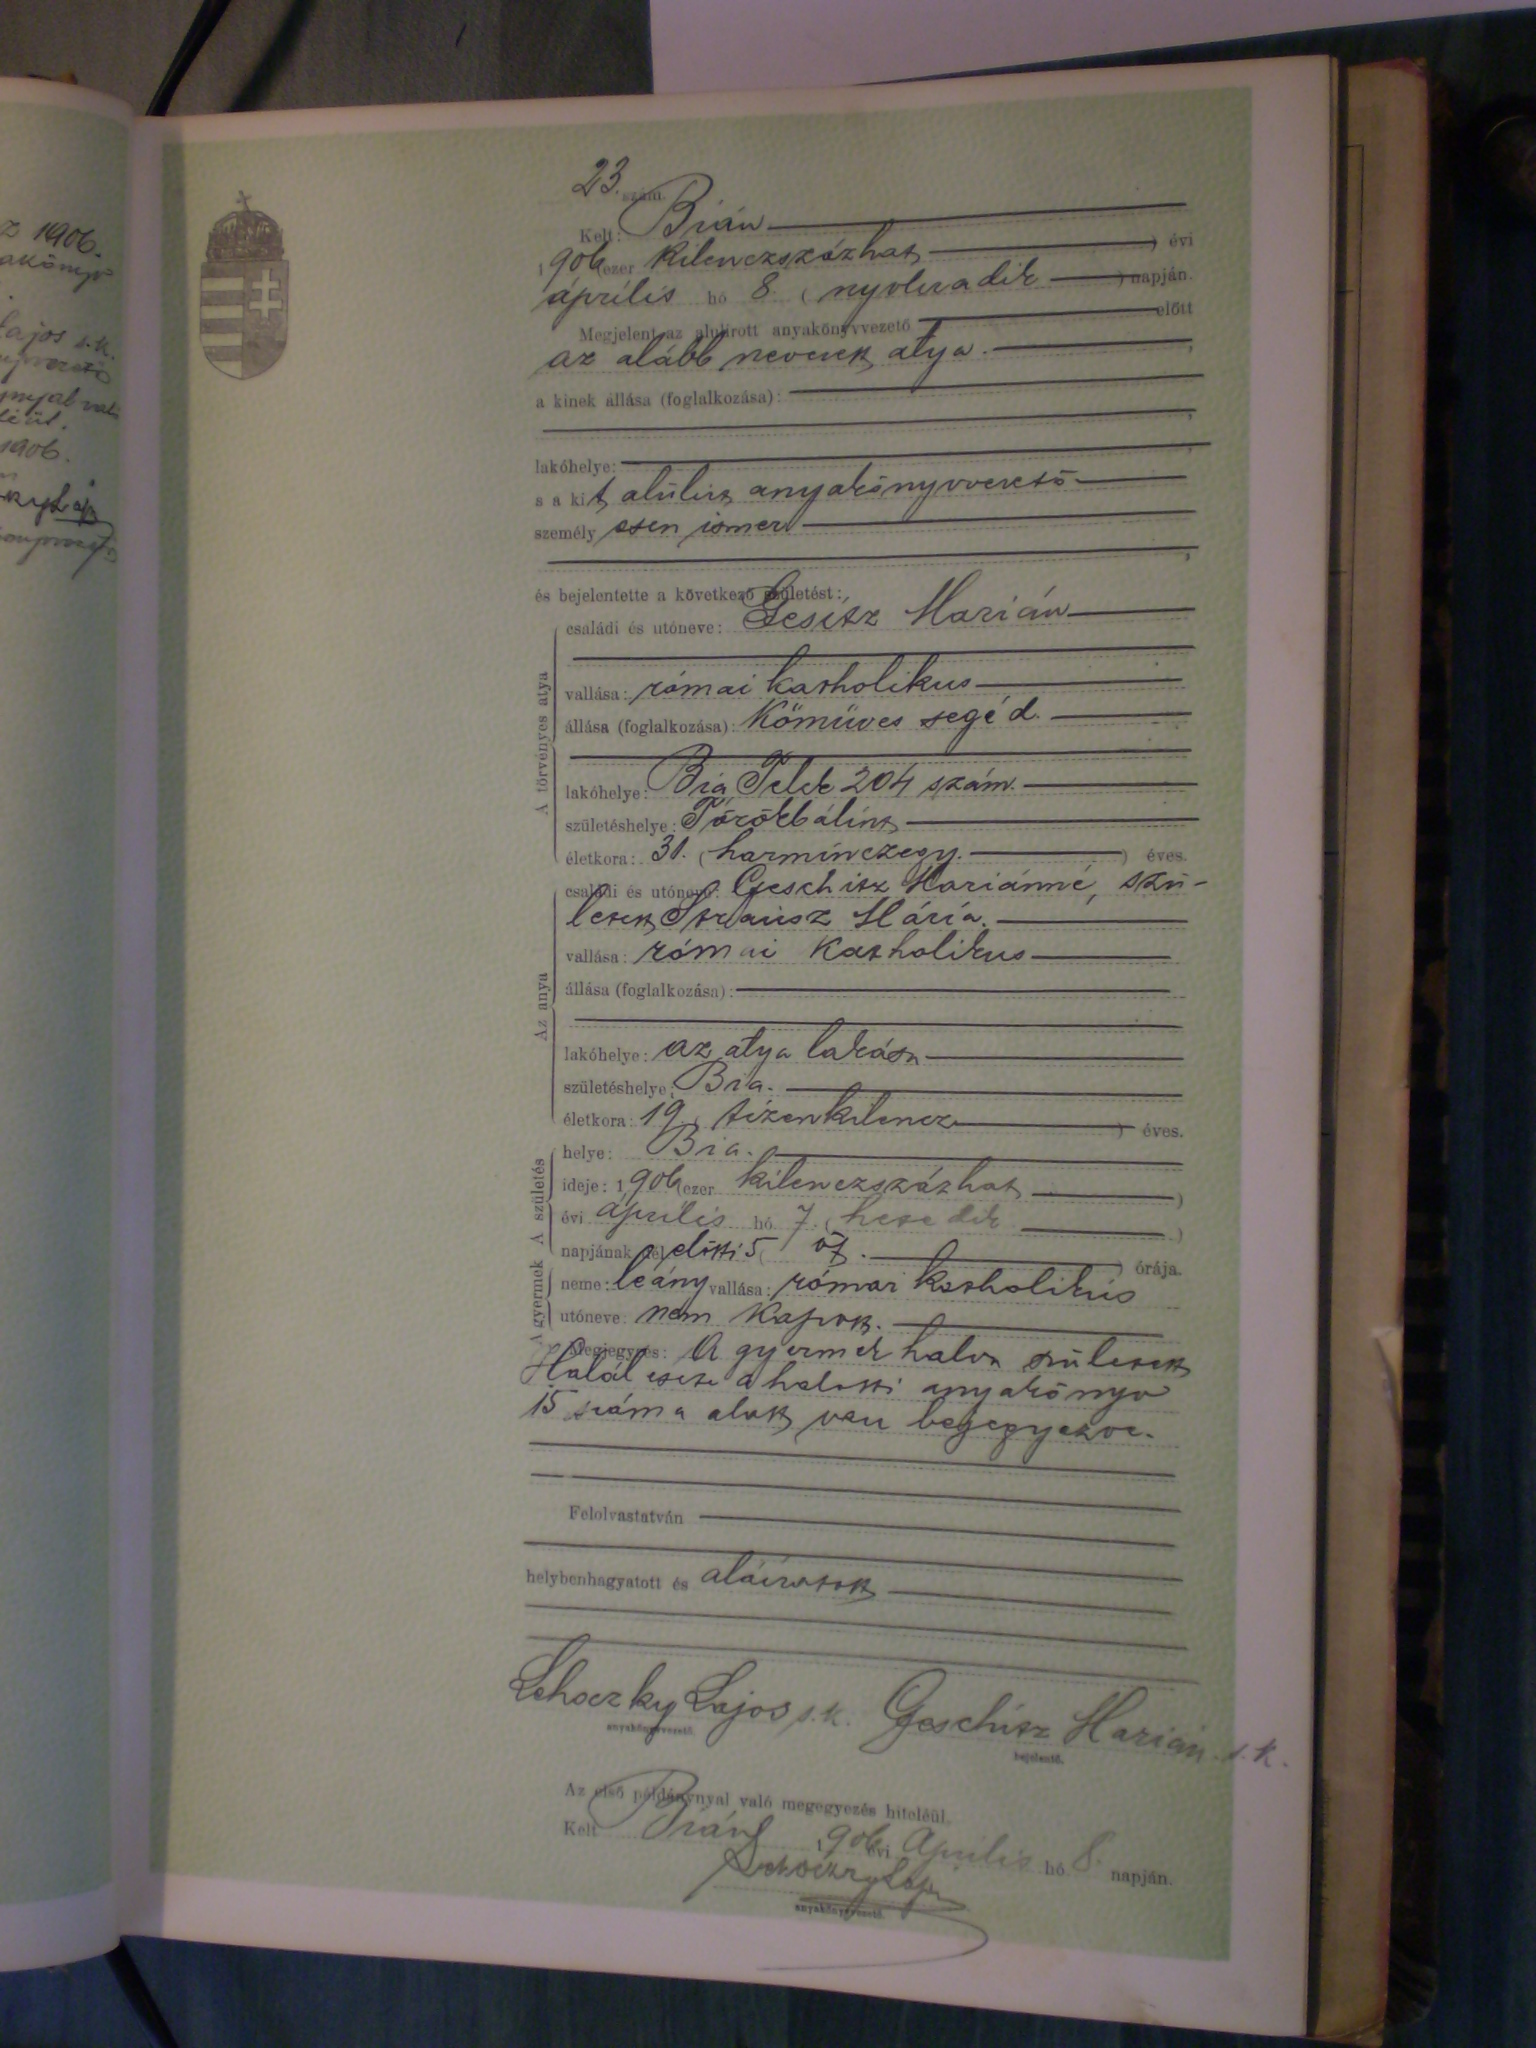 z 1906.
Lajos s. k.
1906.
23. szám.
Kelt: Bián
1906 ezer kilenczszázhat ) évi
április hó 8 ( nyolczadik ) napján.
Megjelent az alulirott anyakönyvvezető előtt
az alább nevezett atya.
a kinek állása (foglalkozása):
lakóhelye:
s a kit alulirt anyakönyvvezető
személy esen ismer
és bejelentette a következő születést:
A törvényes atya
családi és utóneve: Gesitz Marián
vallása: római katholikus
állása (foglalkozása): Kőműves segéd.
lakóhelye: Bia Telek 204 szám.
születéshelye: Törökbálint
életkora: 31. (harminczegy. ) éves.
Az anya
családi és utóneve: Geschitz Mariánné, szü-
letett Strausz Mária.
vallása: római katholikus
állása (foglalkozása):
lakóhelye: az atya lakása
születéshelye: Bia.
életkora: 19 ( tizenkilencz ) éves.
A születés
helye: Bia.
ideje: 1906 ezer kilenczszázhat )
évi április hó 7. ( hetedik )
napjának dél előtti 5 ( öt. ) órája.
A gyermek
neme: leány vallása: római katholikus
utóneve: nem kapott.
Megjegyzés: A gyermek halva született
Halál esete a halotti anyakönyv
15 száma alatt van bejegyezve.
Felolvastatván
helybenhagyatott és aláiratott
Lehoczky Lajos s. k. Geschitz Marián s. k.
anyakönyvvezető. bejelentő.
Az első példánynyal való megegyezés hiteléül.
Kelt Bián 1906 évi Április hó 8. napján.
Lehoczky Lajos
anyakönyvvezető.